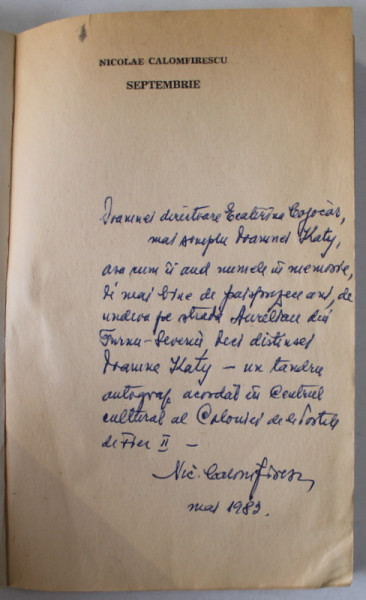 NICOLAE CALOMFIRESCU
SEPTEMBRIE
Doamnei directoare Ecaterina Cojocar,
mai simplu Doamnei Katy,
așa cum îi aud numele în memorie,
de mai bine de paisprezece ani, de
undeva pe strada Aurelian din
Turnu-Severin. Deci distinsei
Doamne Katy — un tandru
autograf, acordat în Centrul
cultural al Coloniei de la Porțile
de Fier II —
Nic. Calomfirescu,
mai 1983.